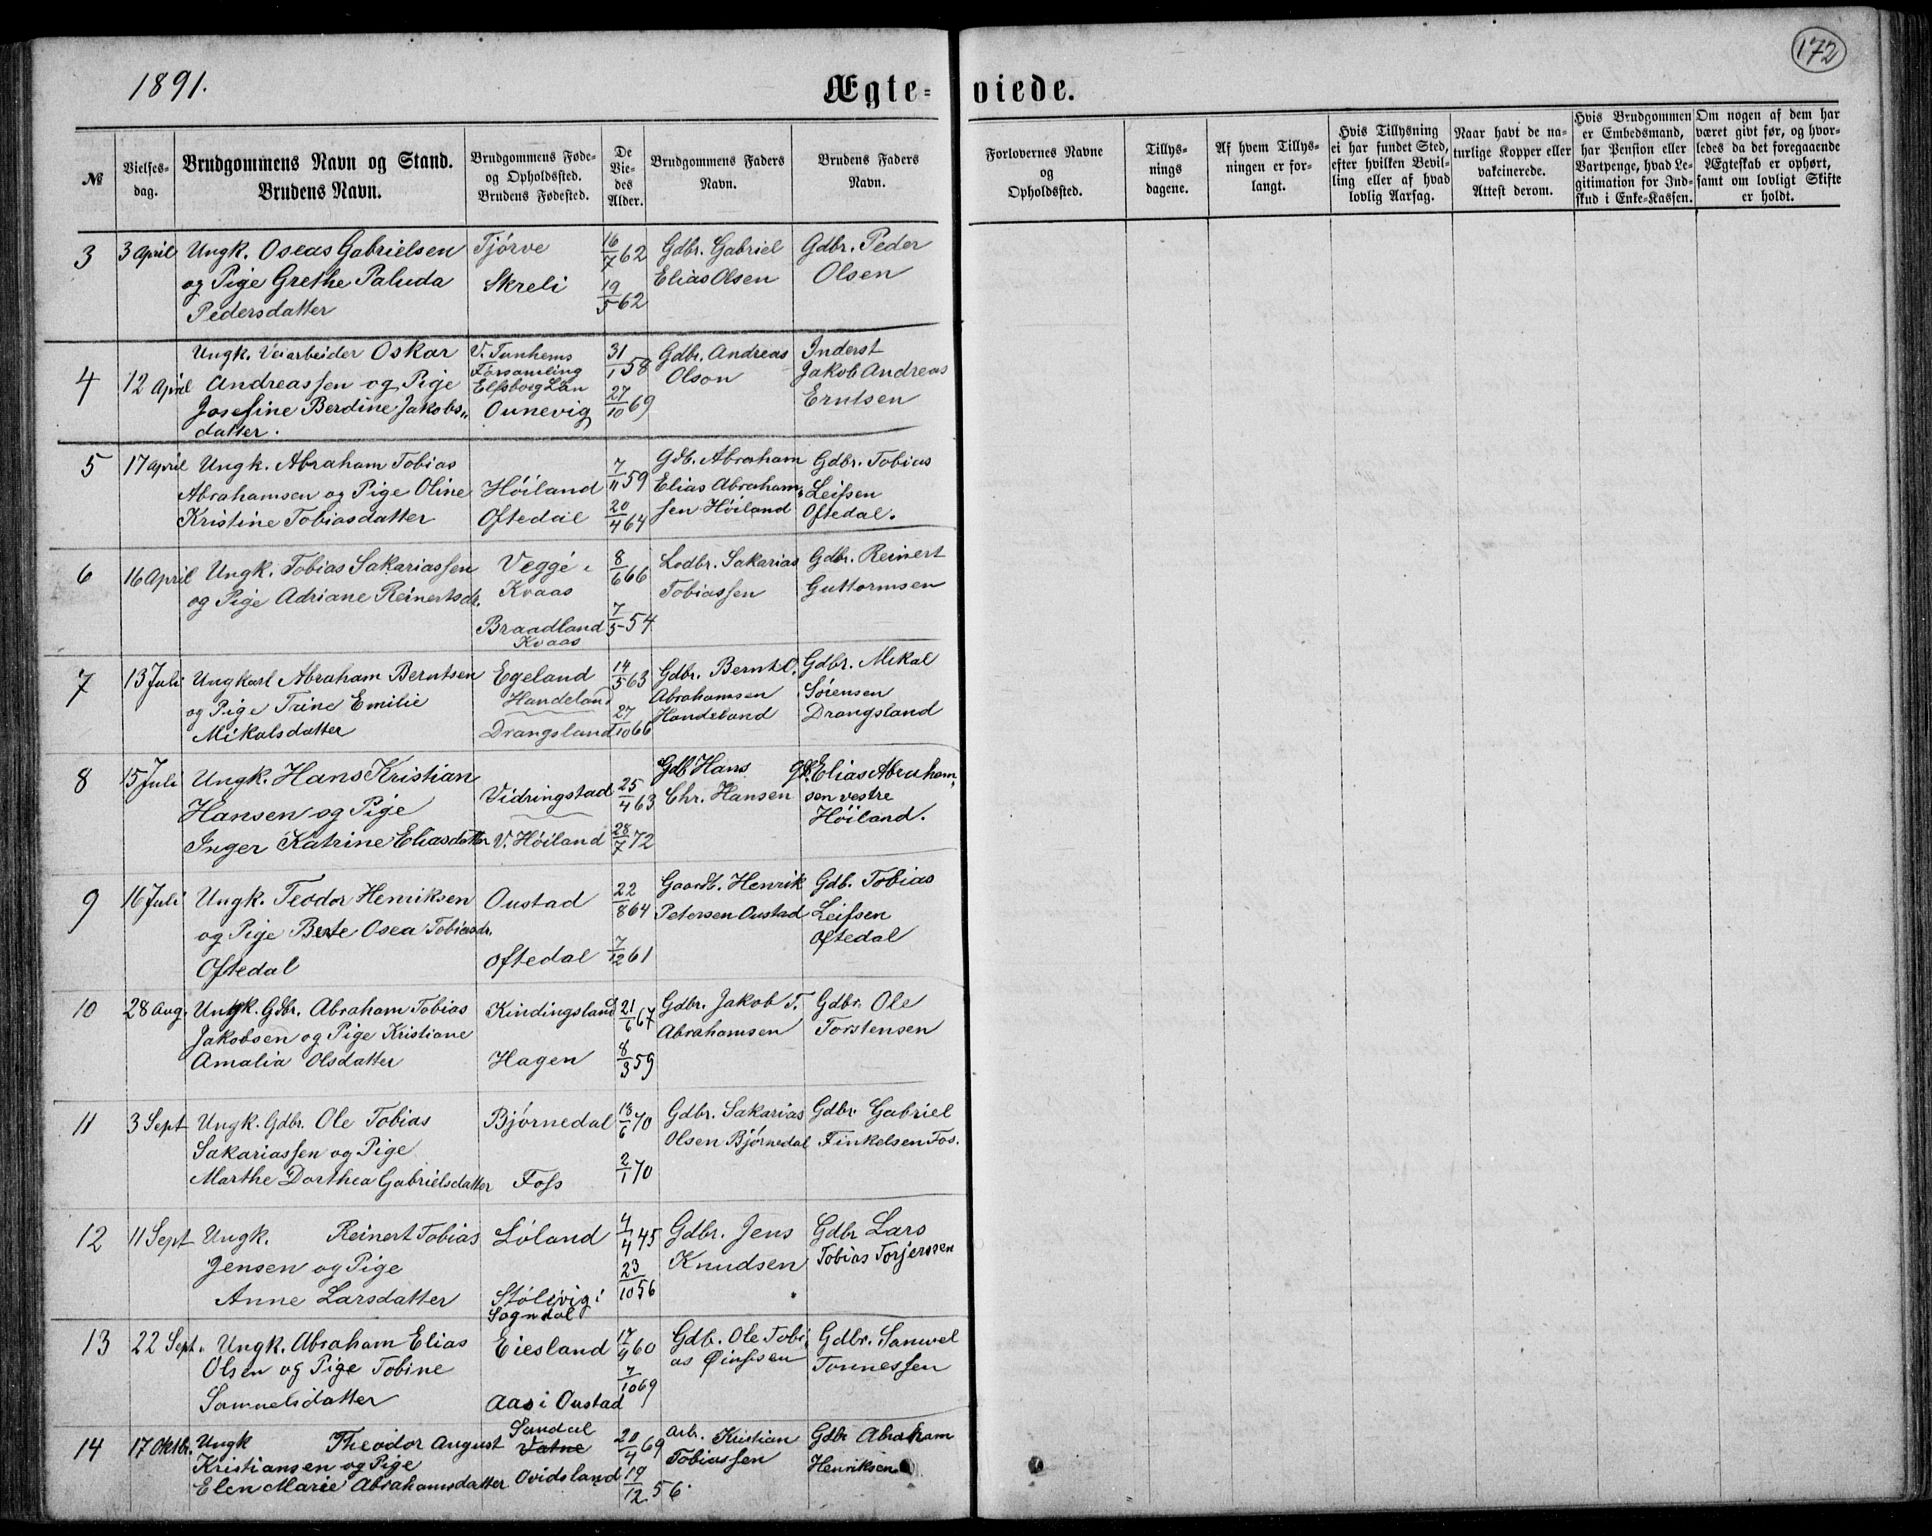 172
1891.
Ægte-
viede.
№
Vielses-
dag.
Brudgommens Navn og Stand.
Brudens Navn.
Brudgommens Føde-
og Opholdssted.
Brudens Fødested.
De
Vie-
des
Alder.
Brudgommens Faders
Navn.
Brudens Faders
Navn.
Forlovernes Navne
og
Opholdssted.
Tillys-
nings
dagene.
Af hvem Tillys-
ningen er for-
langt.
Hvis Tillysning
ei har fundet Sted,
efter hvilken Bevil-
ling eller af hvad
lovlig Aarsag.
Naar havt de na-
turlige Kopper eller
vakcinerede.
Attest derom.
Hvis Brudgommen
er Embedsmand,
har Pension eller
Vartpenge, hvad Le-
gitimation for Ind-
skud i Enke-Kassen.
Om nogen af dem har
været givt før, og hvor-
ledes da det foregaaende
Ægteskab er ophørt,
samt om lovligt Skifte
er holdt.
3 3 April Ungk. Oseas Gabrielsen Tjørve 16/7 62 Gdbr. Gabriel Gdbr. Peder
og Pige Grethe Paluda Skreli 19/5 62 Elias Olsen Olsen
Pedersdatter
4 12 April Ungk. Veiarbeider Oskar V. Tunhems 31/1 58 Gdbr. Andreas Inderst
Andreassen og Pige Forsamling Elfsborg Län Olson Jakob Andreas
Josefine Berdine Jakobs„ Ounevig 27/10 69 Erntsen
datter.
5 17 April Ungk. Abraham Tobias 7/11 59 Gdb. Abraham Gdbr. Tobias
Abrahamsen og Pige Oline Høiland Elias Abraham„ Leifsen
Kristine Tobiasdatter Oftedal 20/4 64 sen Høiland Oftedal.
6 16 April Ungk. Tobias Sakariassen Vegge i 8/6 66 Lodbr. Sakarias Gdbr. Reinert
og Pige Adriane Reinertsdr. Kvaas Tobiassen Guttormsen
Braadland 7/5 54
Kvaas
7 13 Juli Ungkarl Abraham Berntsen Egeland 14/5 63 Gdbr. Bernt Gdbr. Mikal
og Pige Trine Emilie Handeland Abrahamsen Sørensen
Mikalsdatter Drangsland 27/10 66 Handeland Drangsland
8 15 Juli Ungk. Hans Kristian Vidringstad 25/4 63 Gdb Hans Gdb. Elias Abraham„
Hansen og Pige Chr. Hansen sen vestre
Inger Katrine Eliasdatter V. Høiland 28/7 72 Høiland.
9 16 Juli Ungk. Teodor Henriksen Oustad 22/8 64 Gaardb. Henrik Gdb. Tobias
og Pige Berte Osea Tobiasdr. Petersen Oustad Leifsen
Oftedal Oftedal 7/12 61 Oftedal
10 28 Aug. Ungk. Gdbr. Abraham Tobias Kindingsland 21/6 67 Gdbr. Jakob T. Gdbr. Ole
Jakobsen og Pige Kristiane Abrahamsen Torstensen
Amalia Olsdatter Hagen 8/3 59
11 3 Sept Ungk. Gdbr. Ole Tobias Bjørnedal 13/6 70 Gdbr. Sakarias Gdbr. Gabriel
Sakariassen og Pige Olsen Bjørnedal Finkelsen Fos.
Marthe Dorthea Gabrielsdatter Foss 2/1 70
12 11 Sept Ungk. Reinert Tobias Løland 4/4 45 Gdbr. Jens Gdbr Lars
Jensen og Pige Knudsen Tobias Torjerssen
Anne Larsdatter Stølsvig i 23/10 56
Sogndal
13 22 Sept. Ungk. Abraham Elias Eiesland 17/4 60 Gdb. Ole Tobi„ Gdbr. Samuel
Olsen og Pige Tobine as Øinsen Tønnessen
Samuelsdatter Aas i Oustad 7/10 69
14 17 Oktbr. Ungk Theodor August Sandal 20/4 69 Arb. Kristian Gdbr Abraham
Kristiansen og Pige Vatne Tobiassen Henriksen
Elen Marie Abrahamsdatter Ovidsland 19/12 56.